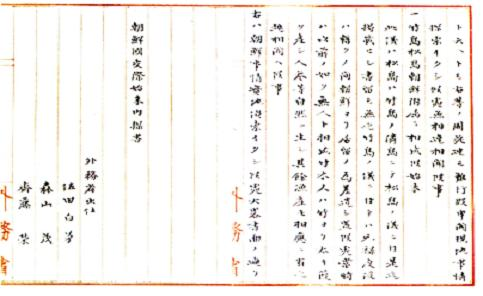 探索イタシ候処無相違相聞候事
一竹島松島朝鮮附属ニ相成候始末
此儀ハ松島ハ竹島ノ隣島ニテ松島ノ儀ニ付是迄
掲載セシ書留モ無之竹島ノ儀ニ付テハ元禄度後
ハ暫クノ間朝鮮ヨリ居留ノ為差遣シ置候処當時
ハ以前ノ如ク無人ト相成竹木又ハ竹ヨリ太キ葭
ヲ産シ人参等自然ニ生シ其餘漁産モ相應ニ有之
趣相聞ヘ候事
右ハ朝鮮事情実地偵索イタシ候処大略書面ノ通リ
外務省
朝鮮國交際始末内探書
外務省出仕
佐田白茅
森山茂
齋藤榮
外務省